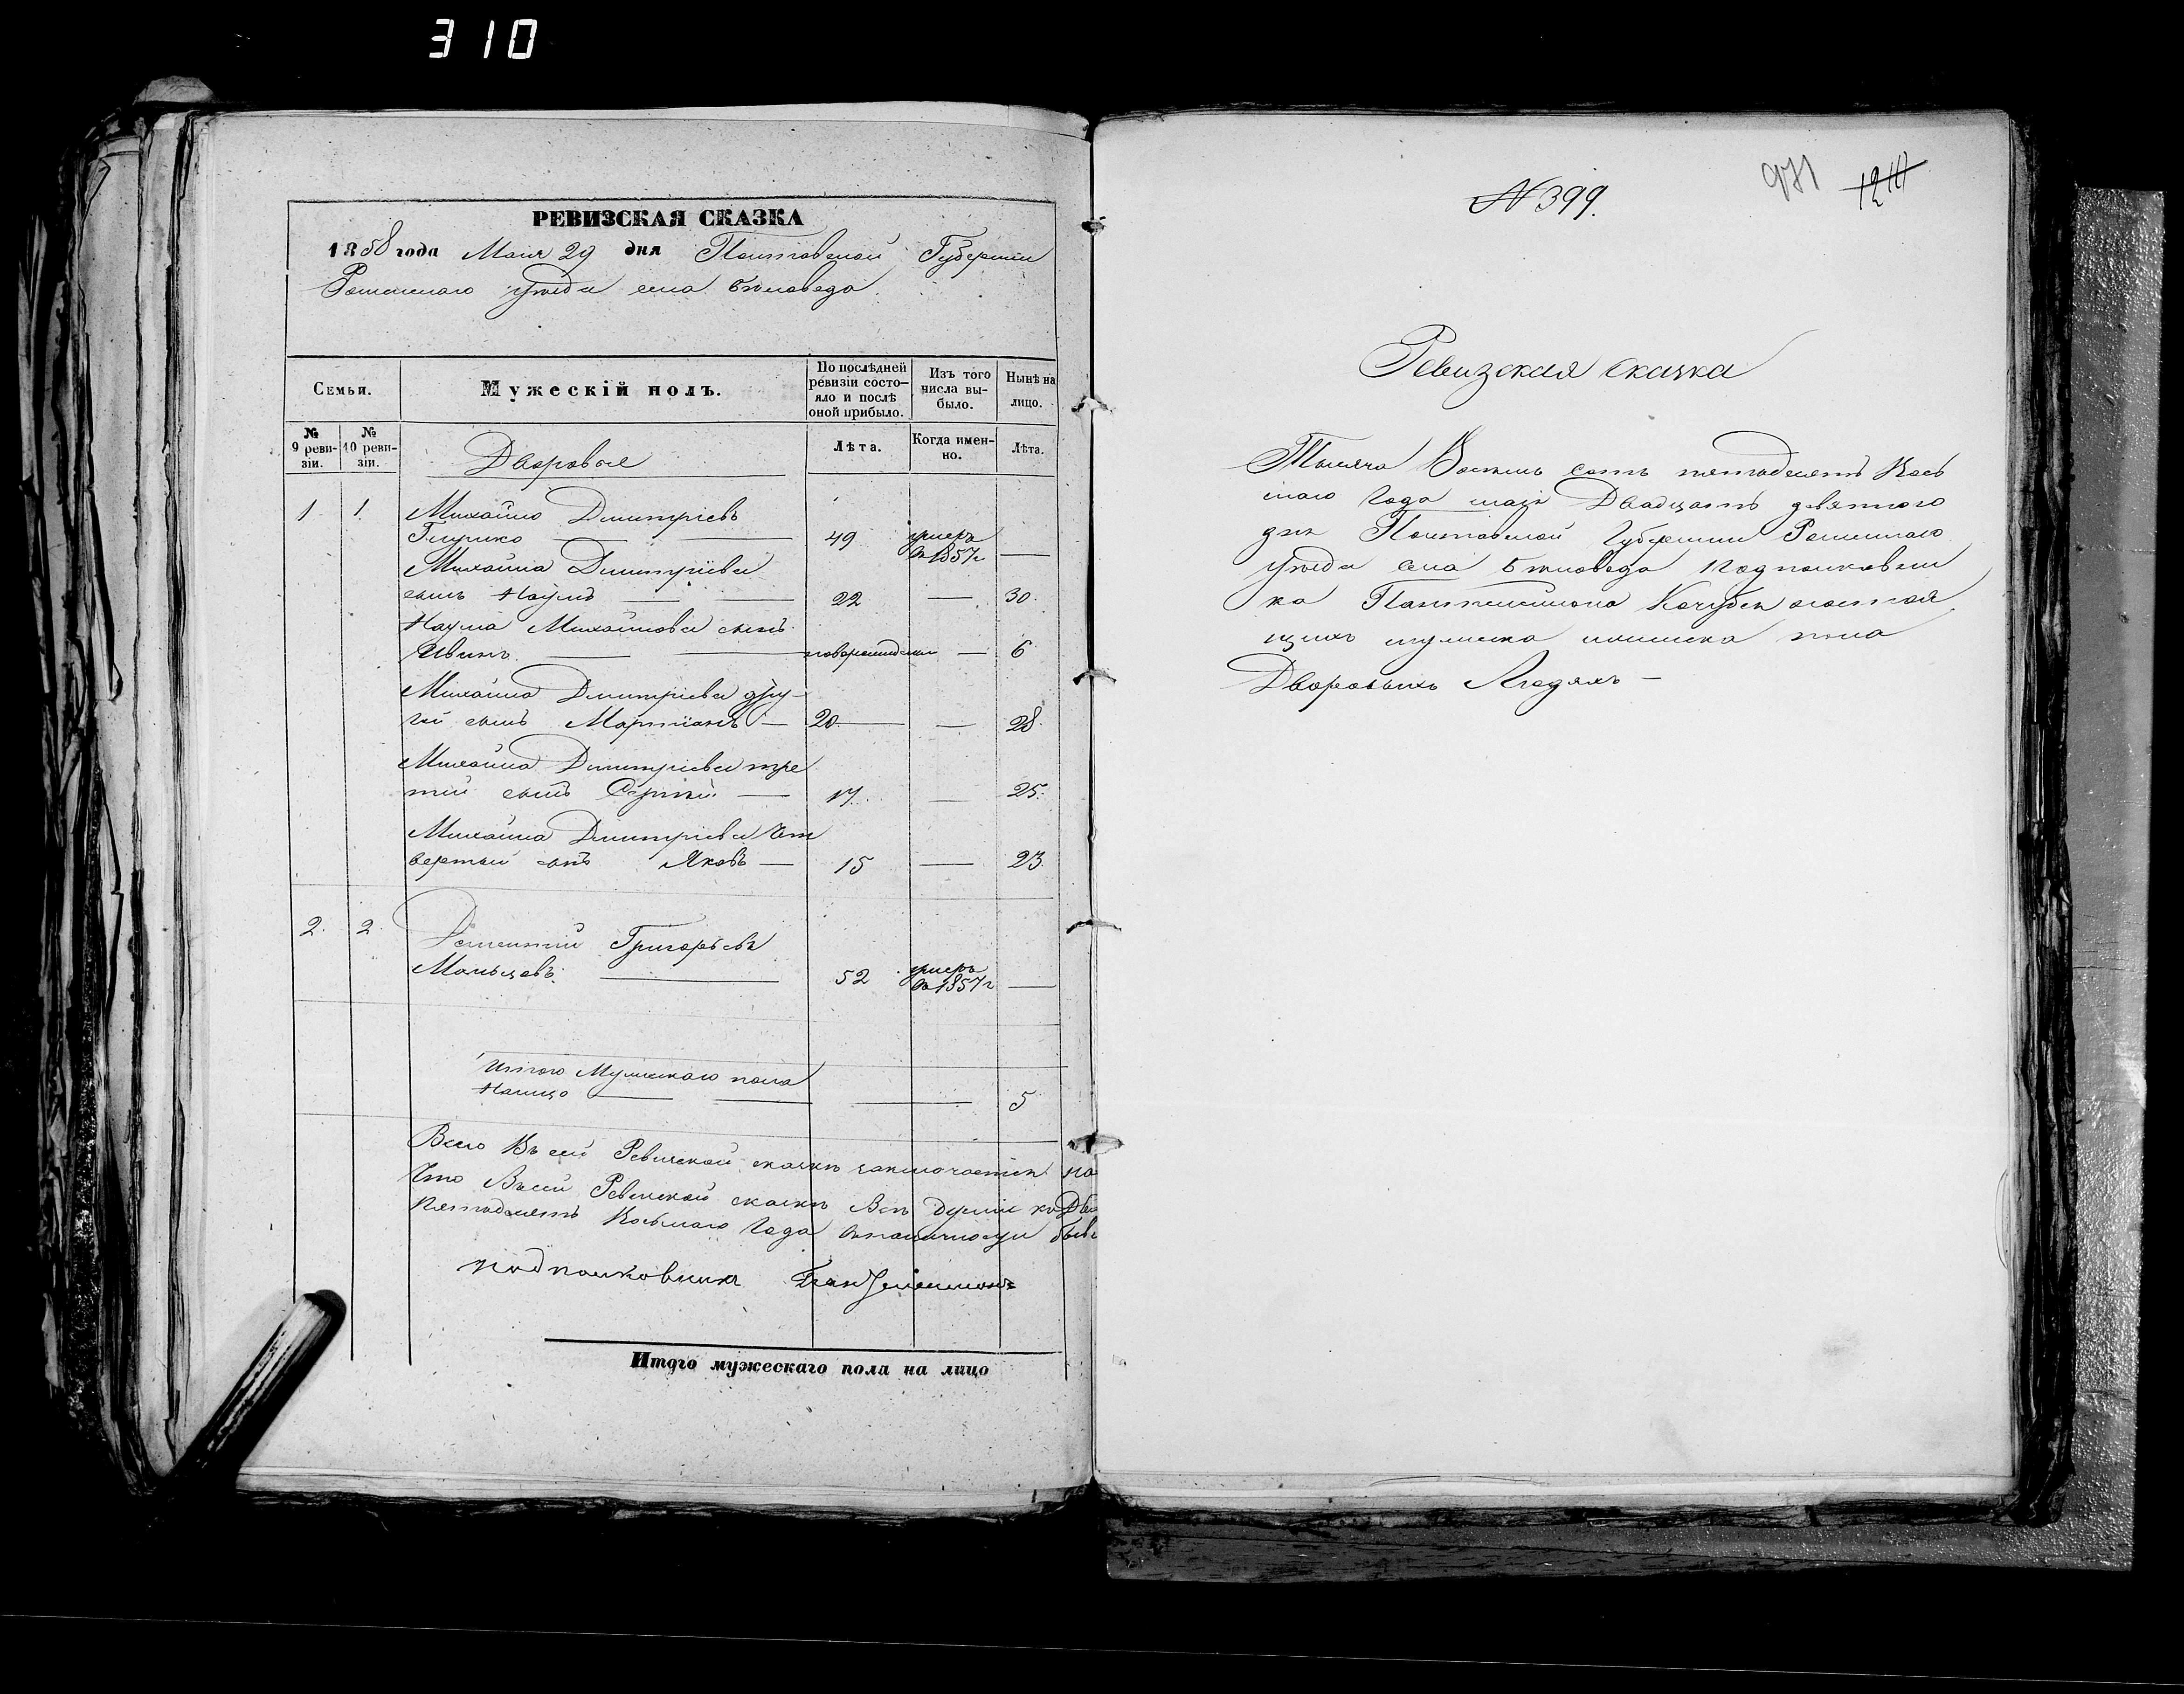 310
РЕВИЗСКАЯ СКАЗКА
1858 года Маия 29 дня Полтавской Губерніи
Роменскаго уѣзда села Бѣловода
Семьи.
Мужескій полъ.
По послѣдней ревизіи состояло и послѣ оной прибыло.
Изъ того числа выбыло.
Нынѣ на лицо.
№ 9 ревизіи.
№ 10 ревизіи.
Дворовые
Лѣта.
Когда именно.
Лѣта.
1 1. Михайло Дмитріевъ
49 умеръ въ 1857 г —
Михайла Дмитріева
сынъ Наумъ — 22 — 30.
Наума Михайлова сынъ
Иванъ — новорожденный — 6
Михайла Дмитріева дру-
гій сынъ Мартинъ — 20 — 28.
Михайла Дмитріева тре
тій сынъ Сергѣй — 17. — 25.
Михайла Дмитріева чет
вертый сынъ Яковъ — 15 — 23.
2. 2. Григорьевъ
52 умеръ въ 1857 г —
Итого Мужескаго пола
Налицо — 5
Всего Въ сей Ревизской сказкѣ заключается
Что Въ сей Ревизской сказкѣ Всѣ души
Пятьдесятъ Восьмаго Года
подполковникъ Пантелеимонъ
Итого мужескаго пола на лицо
№ 399.
971
Ревизская сказка
Тысяча Восемь сотъ пятьдесятъ Вось
маго Года маія Двадцать девятого
дня Полтавской Губерніи Роменскаго
уѣзда села Бѣловода Подполковни
ка Пантелеимона Кочубея состоя
щихъ мужеска женска пола
Дворовыхъ Людяхъ —